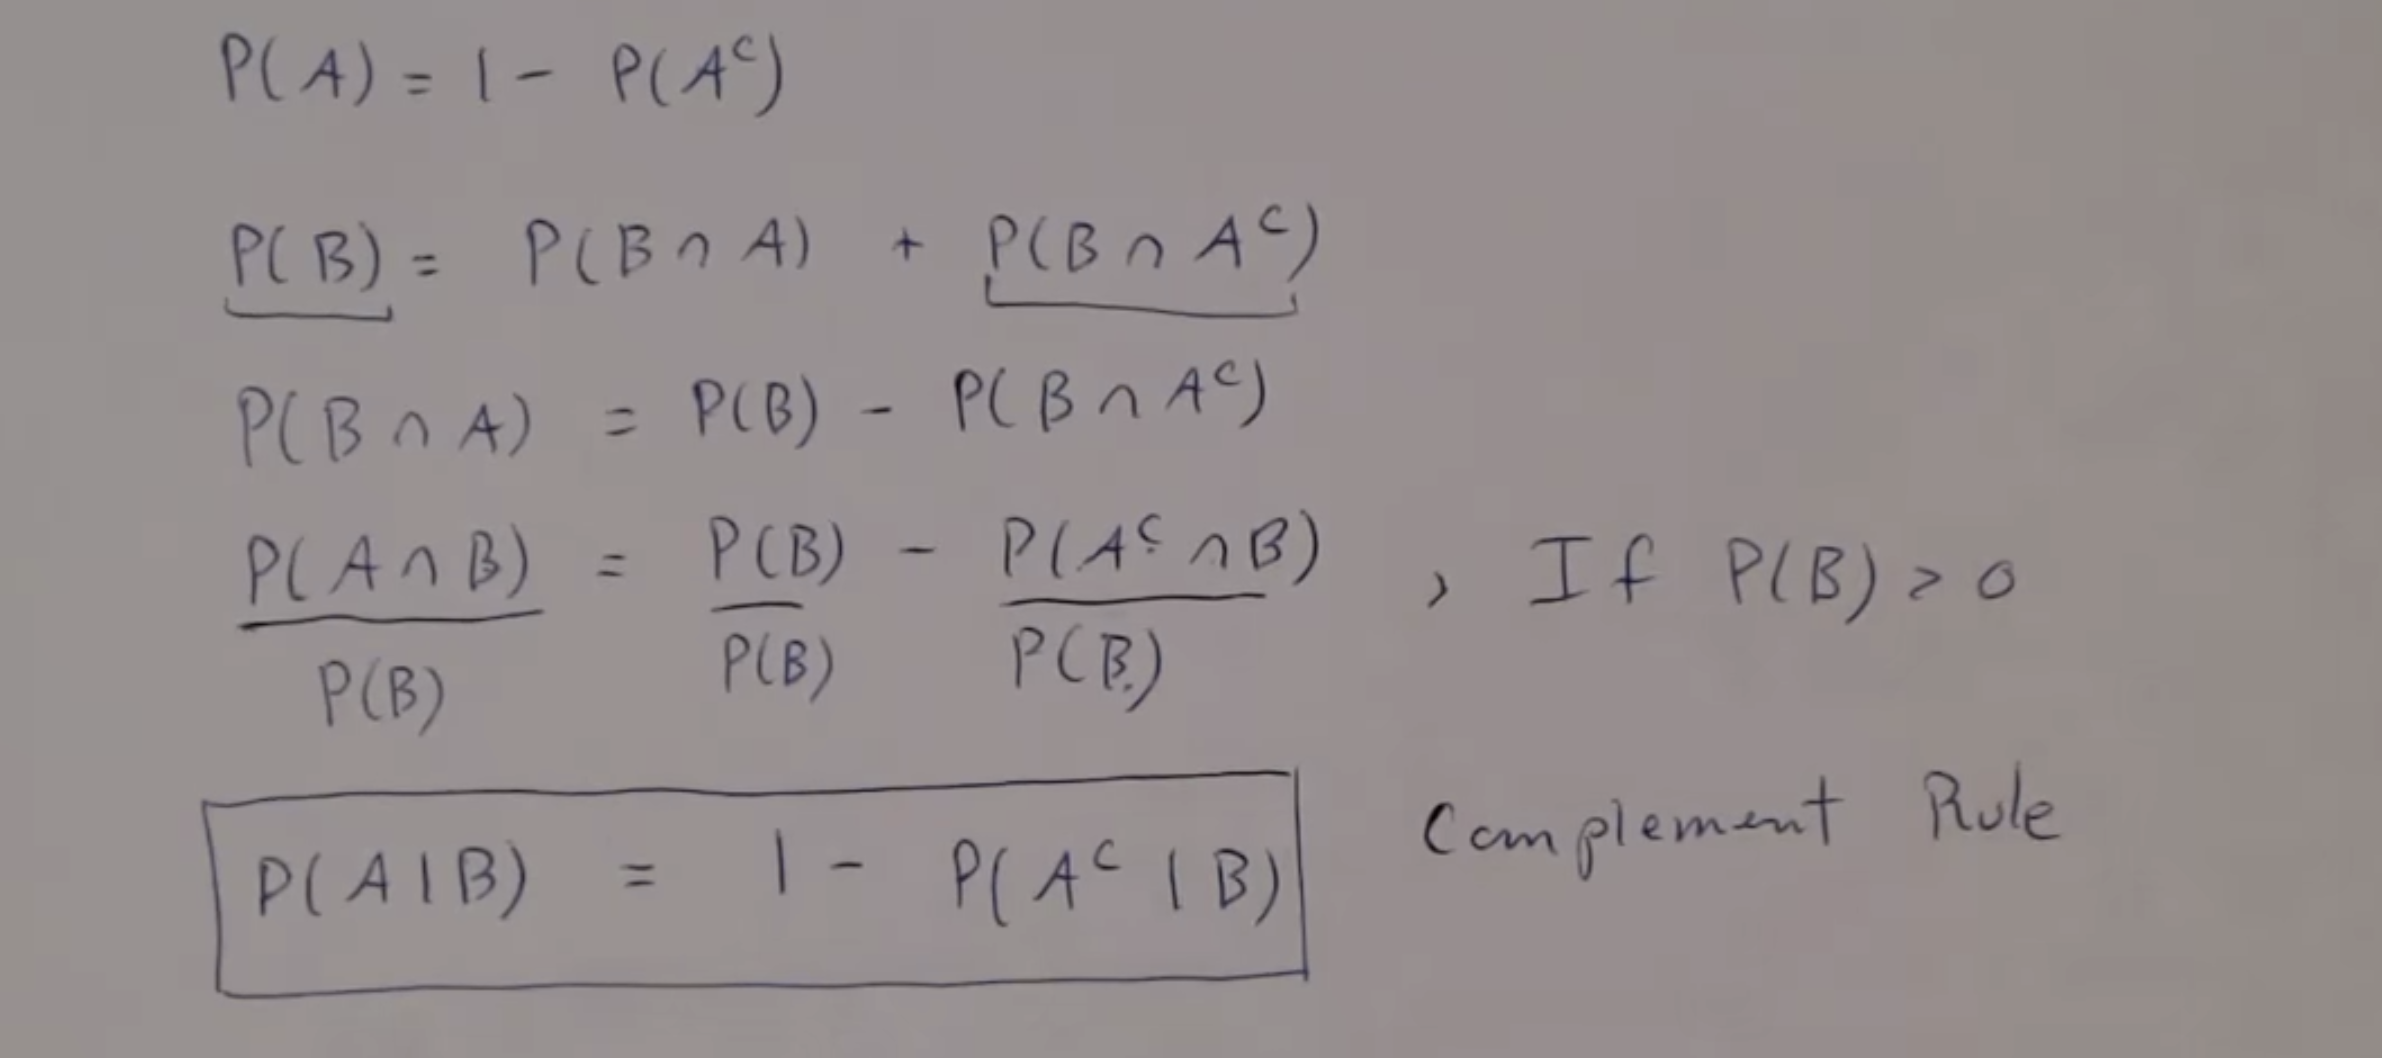 P(A) = 1 - P(Aᶜ)
P(B) = P(B ∩ A) + P(B ∩ Aᶜ)
P(B ∩ A) = P(B) - P(B ∩ Aᶜ)
P(A ∩ B) / P(B) = P(B) / P(B) - P(Aᶜ ∩ B) / P(B) , If P(B) > 0
P(A | B) = 1 - P(Aᶜ | B) Complement Rule